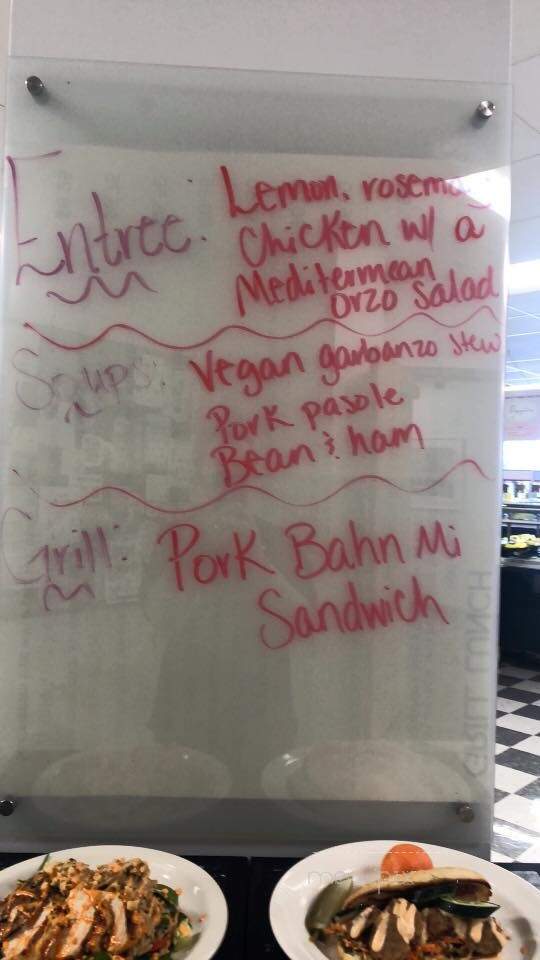 Entree: Lemon, rosemary
Chicken w/ a
Meditermean
orzo Salad
Soups: Vegan garbanzo stew
Pork pasole
Bean & ham
Grill: Pork Bahn Mi
Sandwich
GRILL LUNCH